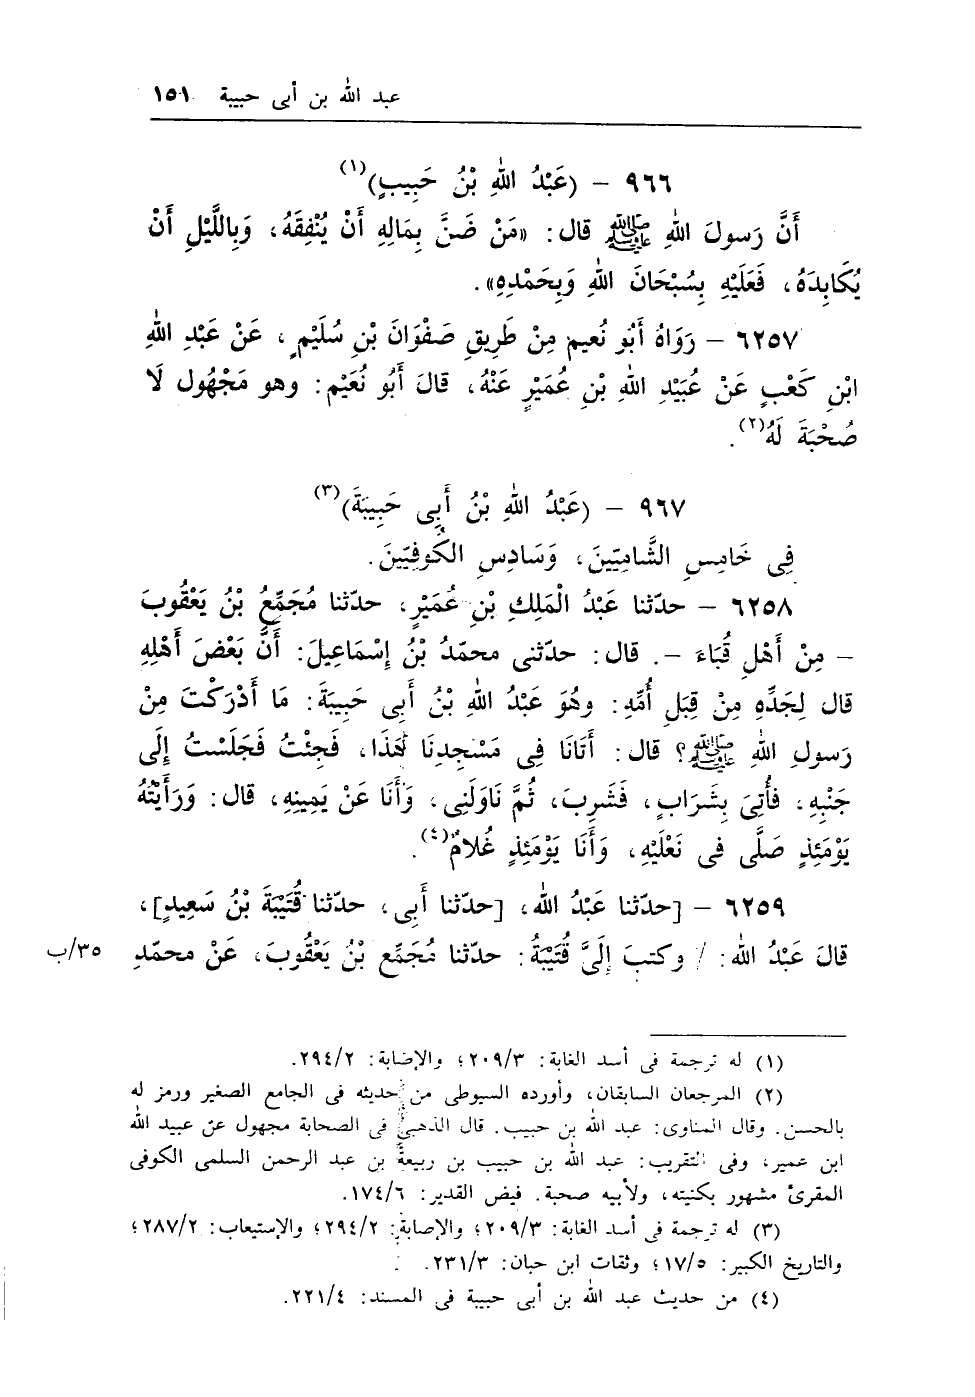 عبد الله بن أبى حبيبة ١٥١
٩٦٦ – (عَبْدُ اللهِ بْنُ حَبِيبٍ)(١)
أَنَّ رَسولَ اللهِ ﷺ قال: «مَنْ ضَنَّ بِمَالِهِ أَنْ يُنْفِقَهُ، وَبِاللَّيْلِ أَنْ
يُكَابِدَهُ، فَعَلَيْهِ بِسُبْحَانَ اللهِ وَبِحَمْدِهِ».
٦٢٥٧ – رَوَاهُ أَبُو نُعيم مِنْ طَرِيقِ صَفْوَانَ بْنِ سُلَيْمٍ، عَنْ عَبْدِ اللهِ
ابْنِ كَعْبٍ عَنْ عُبَيْدِ اللهِ بْنِ عُمَيْرٍ عَنْهُ، قالَ أَبُو نُعَيْم: وهو مَجْهُول لَا
صُحْبَةَ لَهُ(٢).
٩٦٧ – (عَبْدُ اللهِ بْنُ أَبِى حَبِيبَةَ)(٣)
فِى خَامِسِ الشَّامِيّينَ، وَسَادِسِ الكُوفِيّينَ.
٦٢٥٨ – حدّثنا عَبْدُ الْمَلِكِ بْنِ عُمَيْرٍ، حدّثنا مُجَمِّعُ بْنُ يَعْقُوبَ
– مِنْ أَهْلِ قُبَاءَ –. قال: حدّثنى محمّدُ بْنُ إِسْمَاعِيلَ: أَنَّ بَعْضَ أَهْلِهِ
قال لِجَدِّهِ مِنْ قِبَلِ أُمِّهِ: وهُوَ عَبْدُ اللهِ بْنُ أَبِى حَبِيبَةَ: مَا أَدْرَكْتَ مِنْ
رَسولِ اللهِ ﷺ؟ قال: أَتَانَا فِى مَسْجِدِنَا هَذَا، فَجِئْتُ فَجَلَسْتُ إِلَى
جَنْبِهِ، فأُتِىَ بِشَرَابٍ، فَشَرِبَ، ثُمَّ نَاوَلَنِى، وَأَنَا عَنْ يَمِينِهِ، قال: وَرَأَيْتُهُ
يَوْمَئِذٍ صَلَّى فى نَعْلَيْهِ، وَأَنَا يَوْمَئِذٍ غُلامٌ(٤).
٦٢٥٩ – [حدّثنا عَبْدُ الله، [حدّثنا أَبى، حدّثنا قُتَيْبَةَ بْنُ سَعِيدٍ]،
قالَ عَبْدُ الله: / وكتبَ إِلَىَّ قُتَيْبَةُ: حدّثنا مُجَمِّع بْنُ يَعْقُوبَ، عَنْ محمّدِ ٣٥/ب
(١) له ترجمة فى أسد الغابة: ٢٠٩/٣؛ والإصابة: ٢٩٤/٢.
(٢) المرجعان السابقان، وأورده السيوطى من حديثه فى الجامع الصغير ورمز له
بالحسن. وقال المناوى: عبد الله بن حبيب. قال الذهبىّ فى الصحابة مجهول عن عبيد الله
ابن عمير، وفى التقريب: عبد الله بن حبيب بن ربيعة بن عبد الرحمن السلمى الكوفى
المقرئ مشهور بكنيته، ولأبيه صحبة. فيض القدير: ١٧٤/٦.
(٣) له ترجمة فى أسد الغابة: ٢٠٩/٣؛ والإصابة: ٢٩٤/٢؛ والإستيعاب: ٢٨٧/٢؛
والتاريخ الكبير: ١٧/٥؛ وثقات ابن حبان: ٢٣١/٣.
(٤) من حديث عبد الله بن أبى حبيبة فى المسند: ٢٢١/٤.